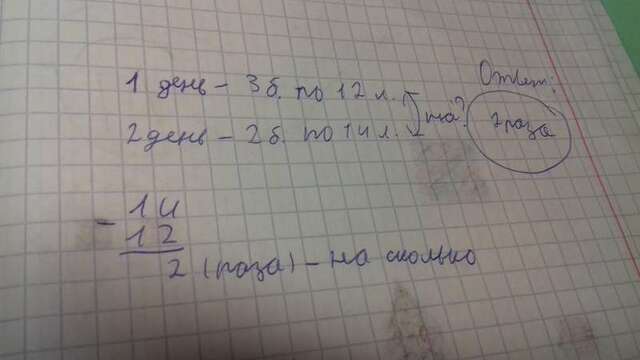 1 день - 3 б. по 12 л.
2 день - 2 б. по 14 л.
на?
Ответ:
2 раза
- 14
12
2 (раза) - на сколько